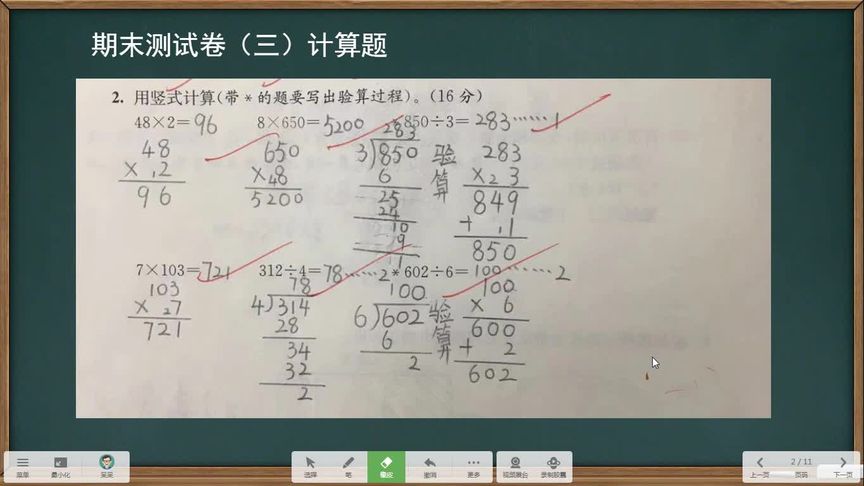 期末测试卷（三）计算题
2. 用竖式计算(带*的题要写出验算过程)。(16分)
48×2=96 8×650=5200 *850÷3=283······1
48
×12
96
650
×48
5200
283
3)850
6
25
24
10
9
1
验算
283
×23
849
+ 1
850
7×103=721 312÷4=78······2 *602÷6=100······2
103
×27
721
78
4)314
28
34
32
2
100
6)602
6
2
验算
100
× 6
600
+ 2
602
菜单 最小化 选择 笔 橡皮 撤消 更多 上一页 2/11 页码 下一页